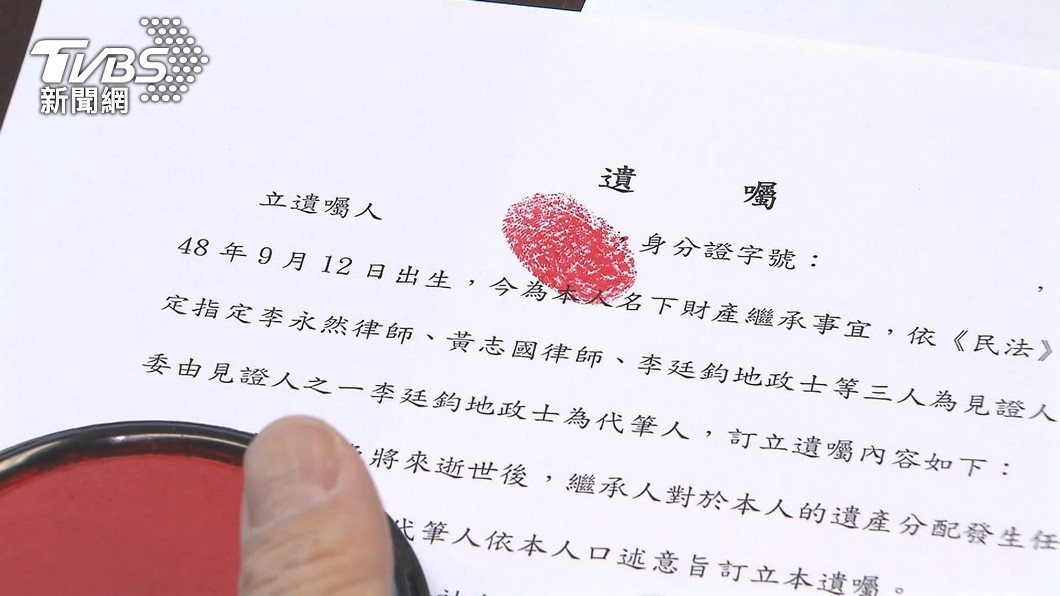 TVBS
新聞網
遺 囑
立遺囑人 身分證字號： ，
48年9月12日出生，今為本人名下財產繼承事宜，依《民法》
定指定李永然律師、黃志國律師、李廷鈞地政士等三人為見證人
委由見證人之一李廷鈞地政士為代筆人，訂立遺囑內容如下：
將來逝世後，繼承人對於本人的遺產分配發生任
代筆人依本人口述意旨訂立本遺囑。